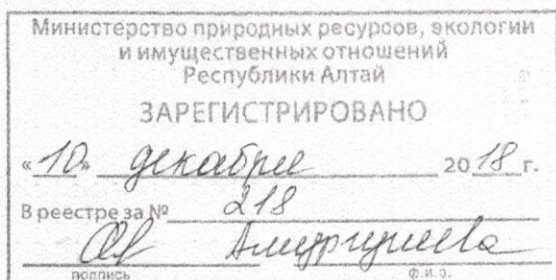 Министерство природных ресурсов, экологии
и имущественных отношений
Республики Алтай
ЗАРЕГИСТРИРОВАНО
«10» декабря 2018 г.
В реестре за № 218
подпись ф.и.о.